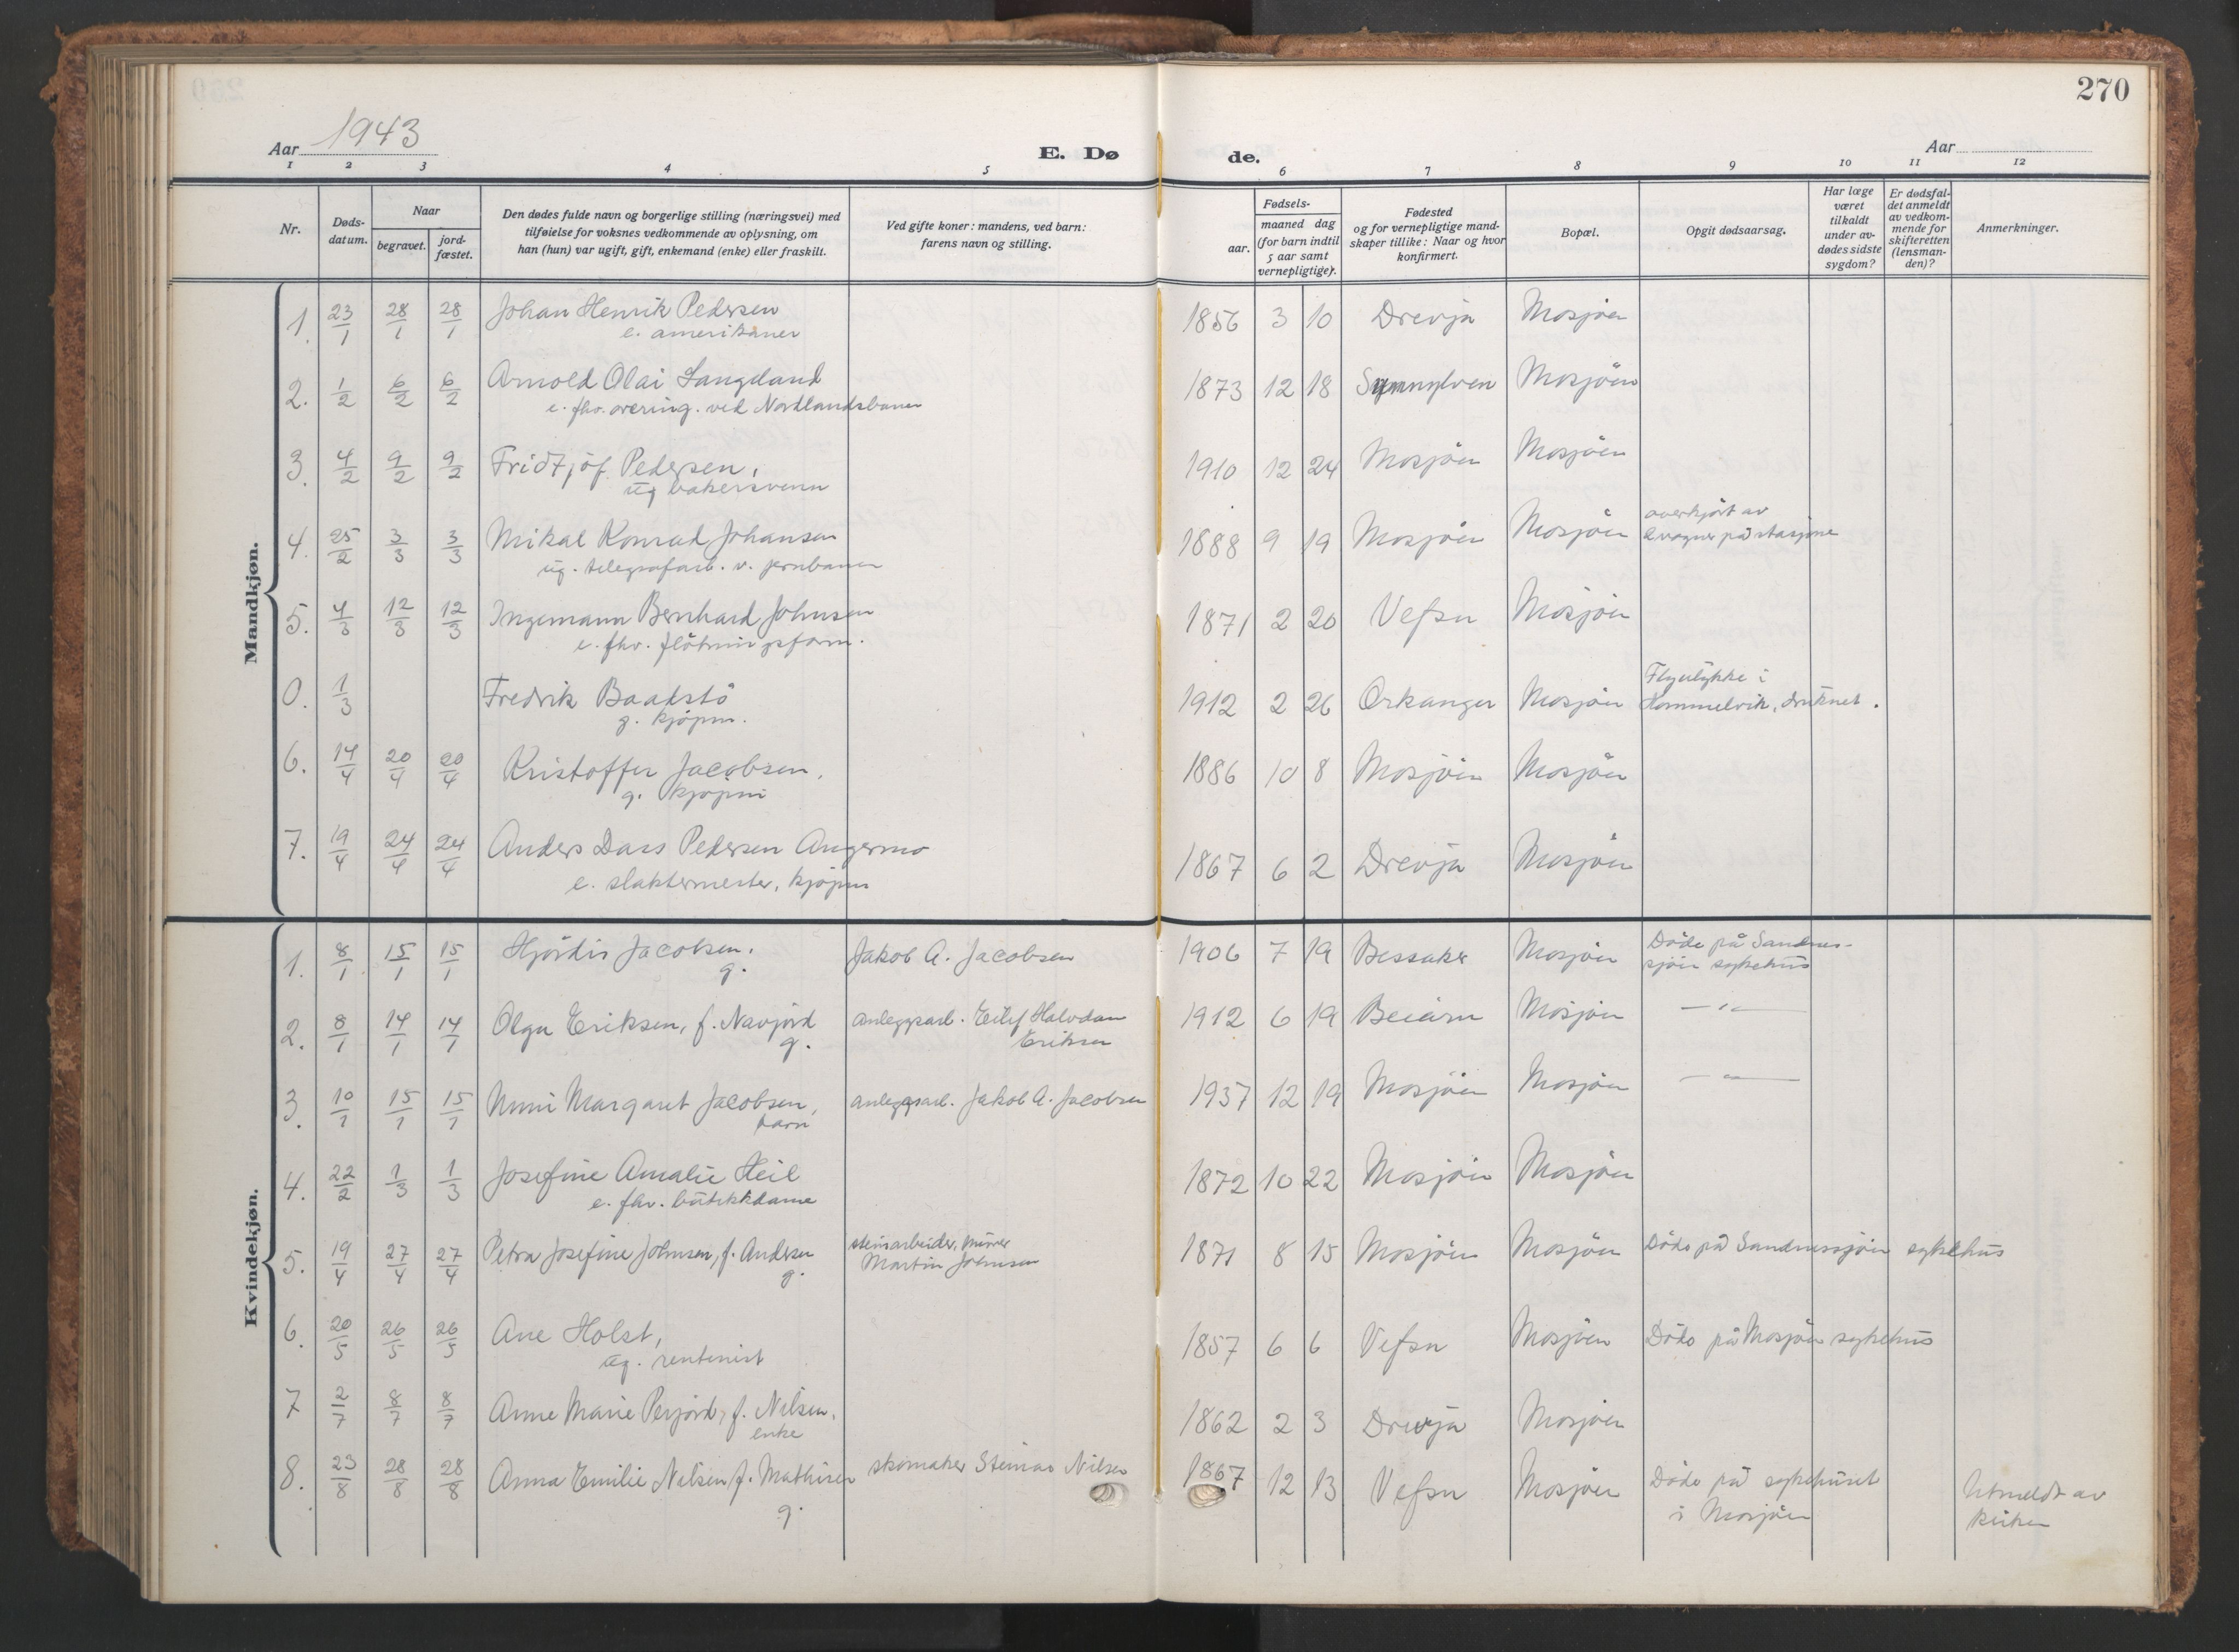 270
Aar 1943
E. Dø
de.
Aar
1 2 3 4 5 6 7 8 9 10 11 12
Nr.
Døds-
datum.
Naar
begravet.
jord-
fæstet.
Den dødes fulde navn og borgerlige stilling (næringsvei) med
tilføielse for voksnes vedkommende av oplysning, om
han (hun) var ugift, gift, enkemand (enke) eller fraskilt.
Ved gifte koner: mandens, ved barn:
farens navn og stilling.
Fødsels-
aar.
maaned dag
(for barn indtil
5 aar samt
vernepligtige).
Fødested
og for vernepligtige mand-
skaper tillike: Naar og hvor
konfirmert.
Bopæl.
Opgit dødsaarsag.
Har læge
været
tilkaldt
under av-
dødes sidste
sygdom?
Er dødsfal-
det anmeldt
av vedkom-
mende for
skifteretten
(lensman-
den)?
Anmerkninger.
Mandkjøn.
1. 23/1 28/1 28/1 Johan Henrik Pedersen 1856 3 10 Drevja Mosjøen
e. amerikaner
2. 1/2 6/2 6/2 Arnold Olai Langeland 1873 12 18 Sunnylven Mosjöen
e. fhv. overing. ved Nordlandsbanen
3. 4/2 9/2 9/2 Fridtjöf Pedersen, 1910 12 24 Mosjöen Mosjöen
ug bakersvenn
4. 25/2 3/3 3/3 Mikal Konrad Johansen 1888 9 19 Mosjöen Mosjöen overkjört av
ug. telegrafarb. v. jernbanen vogner på stasjone
5. 4/3 12/3 12/3 Ingemann Bernhard Johnsen 1871 2 20 Vefsn Mosjöen
e. fhv. flötningsform.
0. 1/3 Fredrik Baadstö 1912 2 26 Orkanger Mosjöen Flyulykke i
g. kjöpm. Hommelvik, druknet.
6. 14/4 20/4 20/4 Kristoffer Jacobsen, 1886 10 8 Mosjöen Mosjöen
g. kjöpm
7. 19/4 24/4 24/4 Anders Dass Pedersen Angermo 1867 6 2 Drevja Mosjöen
e. slaktermester, kjöpm
Kvindekjøn.
1. 8/1 15/1 15/1 Hjördis Jacobsen. Jakob A. Jacobsen 1906 7 19 Bessaker Mosjöen Döde på Sandnes-
g. sjöen sykehus
2. 8/1 14/1 14/1 Olga Eriksen, f. Navjord anleggsarb. Eilif Halvdan 1912 6 19 Beiarn Mosjöen — " —
g. Eriksen
3. 10/1 15/1 15/1 Unni Margaret Jacobsen, anleggsarb. Jakob A. Jacobsen 1937 12 19 Mosjöen Mosjöen — " —
barn
4. 22/2 1/3 1/3 Josefine Amalie Heil 1872 10 22 Mosjöen Mosjöen
e. fhv. butikkdame
5. 19/4 27/4 27/4 Petra Josefine Johnsen, f. Andersen steinarbeider, murer 1871 8 15 Mosjöen Mosjöen Döde på Sandnessjöen sykehus
g. Martin Johnsen
6. 20/5 26/5 26/5 Ane Holst, 1857 6 6 Vefsn Mosjöen Döde på Mosjöen sykehus
ug. rentenist
7 2/7 8/7 8/7 Anne Marie Perjord, f. Nilsen, 1862 2 3 Drevja Mosjöen
enke
8. 23/8 28/8 28/8 Anna Emilie Nilsen f. Mathisen skomaker Steinar Nilsen 1867 12 13 Vefsn Mosjöen Döde på sykehuset Utmeldt av
g. i Mosjöen kirken